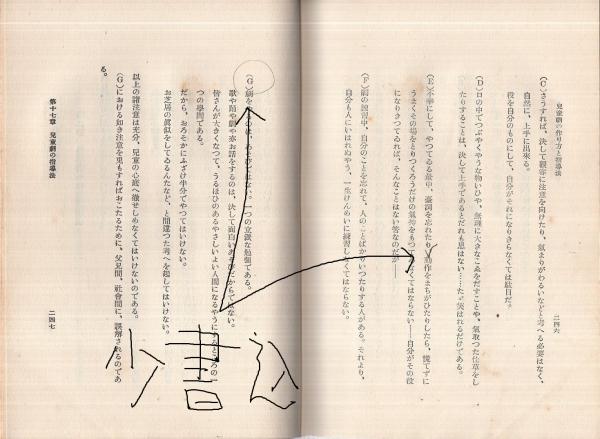 兒童劇の作り方と指導法
二四六
(C) さうすれば、決して觀客に注意を向けたり、氣まりがわるいなどと考へる必要はなく、
自然に、上手に出來る。
役を自分のものにして、自分がそれになりきらなくては駄目だ。
(D) 口の中でつぶやくやうな物いひや、無理に大きなこゑをだすことや、氣取つた仕草をし
たりすることは、決して上手であるとだれも思はない……たゞ笑はれるだけである。
(E) 不幸にして、やつてゐる最中、臺詞を忘れたり、動作をまちがひたりしたら、慌てずに
うまくその場をとりつくろうだけの氣持をもつてゐなくてはならない――自分がその役
になりきつてゐれば、そんなことはない筈なのだが――
(F) 劇の練習中、自分のことを忘れて、人のことばかりいつたりする人がある。それより、
自分も人にいはれぬやう、一生けんめいに練習しなくてはならない。
(G) 劇を あそびではない。一つの立派な勉強である。
歌や踊や劇や亦お話をするのは、決して面白いあそびだからではない。
皆さんが大きくなつて、うるほひのあるやさしいよい人間になるやうにするところの一
つの學問である。
だから、おろそかにふざけ半分でやつてはいけない。
お芝居の眞似をしてゐるんだなど、と間違つた考へを起してはいけない。
以上の諸注意は充分、兒童の心底へ徹せしめなくてはいけないのである。
(G)における如き注意を男もすればおこたるために、父兄間、社會間に、誤解されるのであ
る。
第十七章 兒童劇の指導法
二四七
少書込